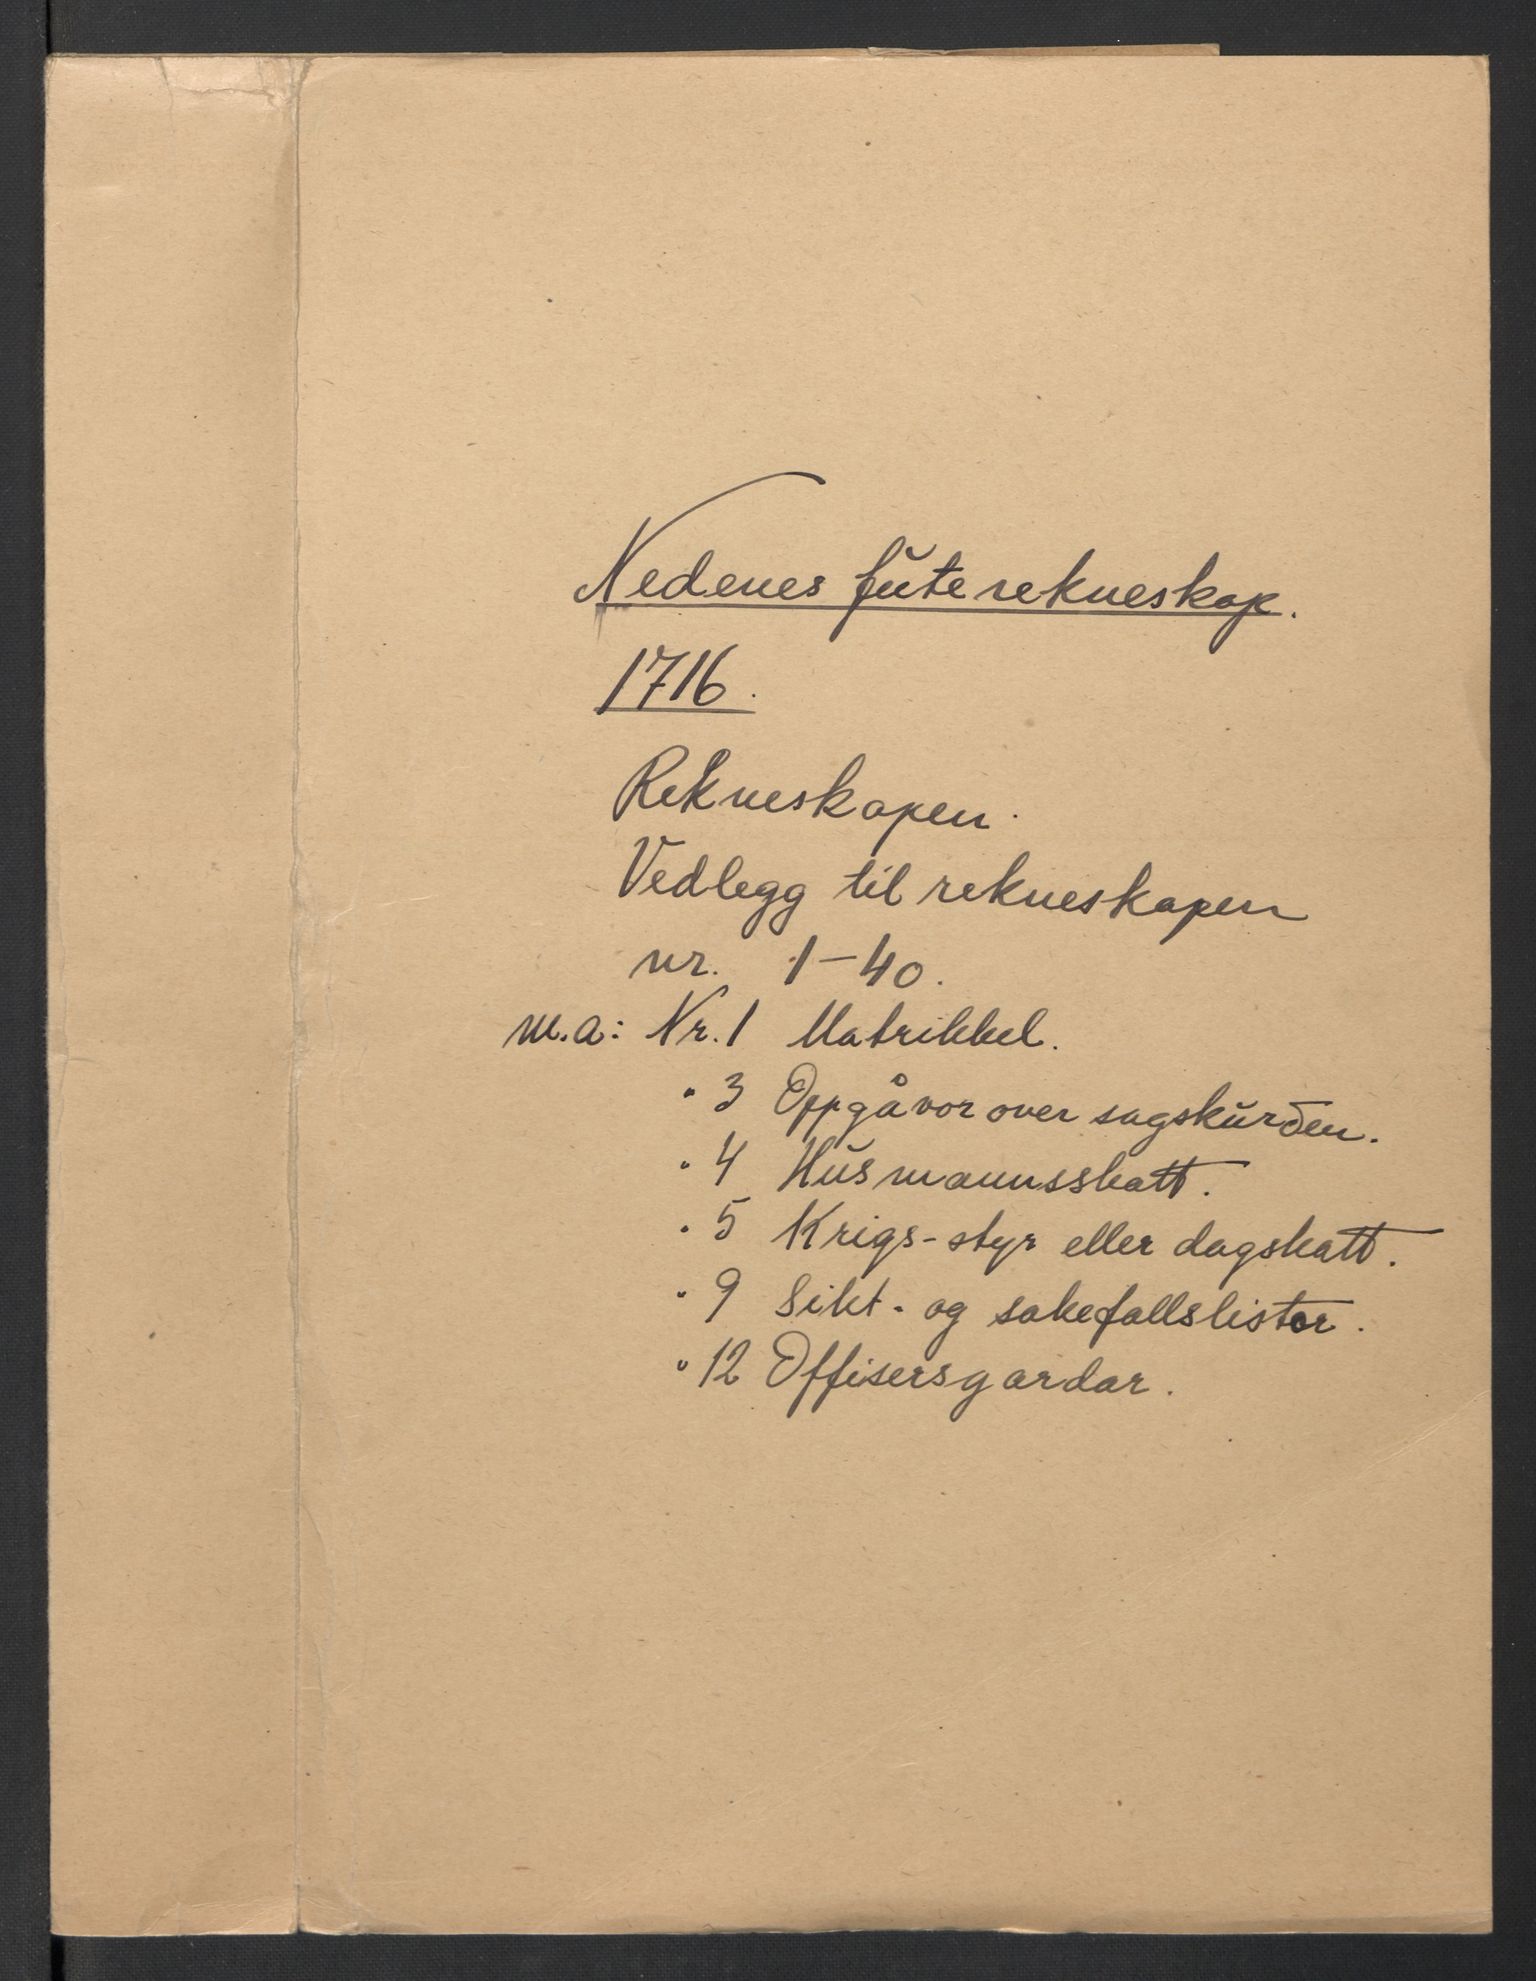 Nedenes futerekneskap.
1716.
Rekneskapen.
Vedlegg til rekneskapen
nr. 1-40.
m.a: Nr. 1 Matrikkel.
" 3 Oppgåvor over sagskurden.
" 4 Husmannsskatt.
" 5 Krigs-styr eller dagskatt.
" 9 Sikt- og sakefallslistor.
" 12 Offisersgardar.